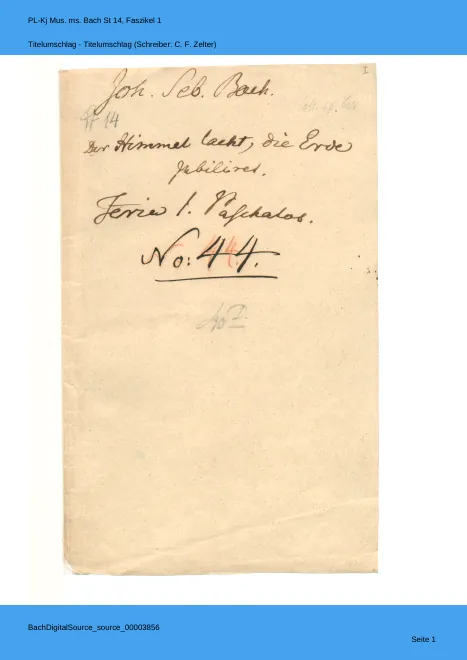 PL-Kj Mus. ms. Bach St 14, Faszikel 1
Titelumschlag - Titelumschlag (Schreiber: C. F. Zelter)
1
Joh. Seb. Bach.
St 14
Der Himmel lacht, die Erde
jubiliret.
Feria 1. Paschatos.
No: 44.
BachDigitalSource_source_00003856
Seite 1